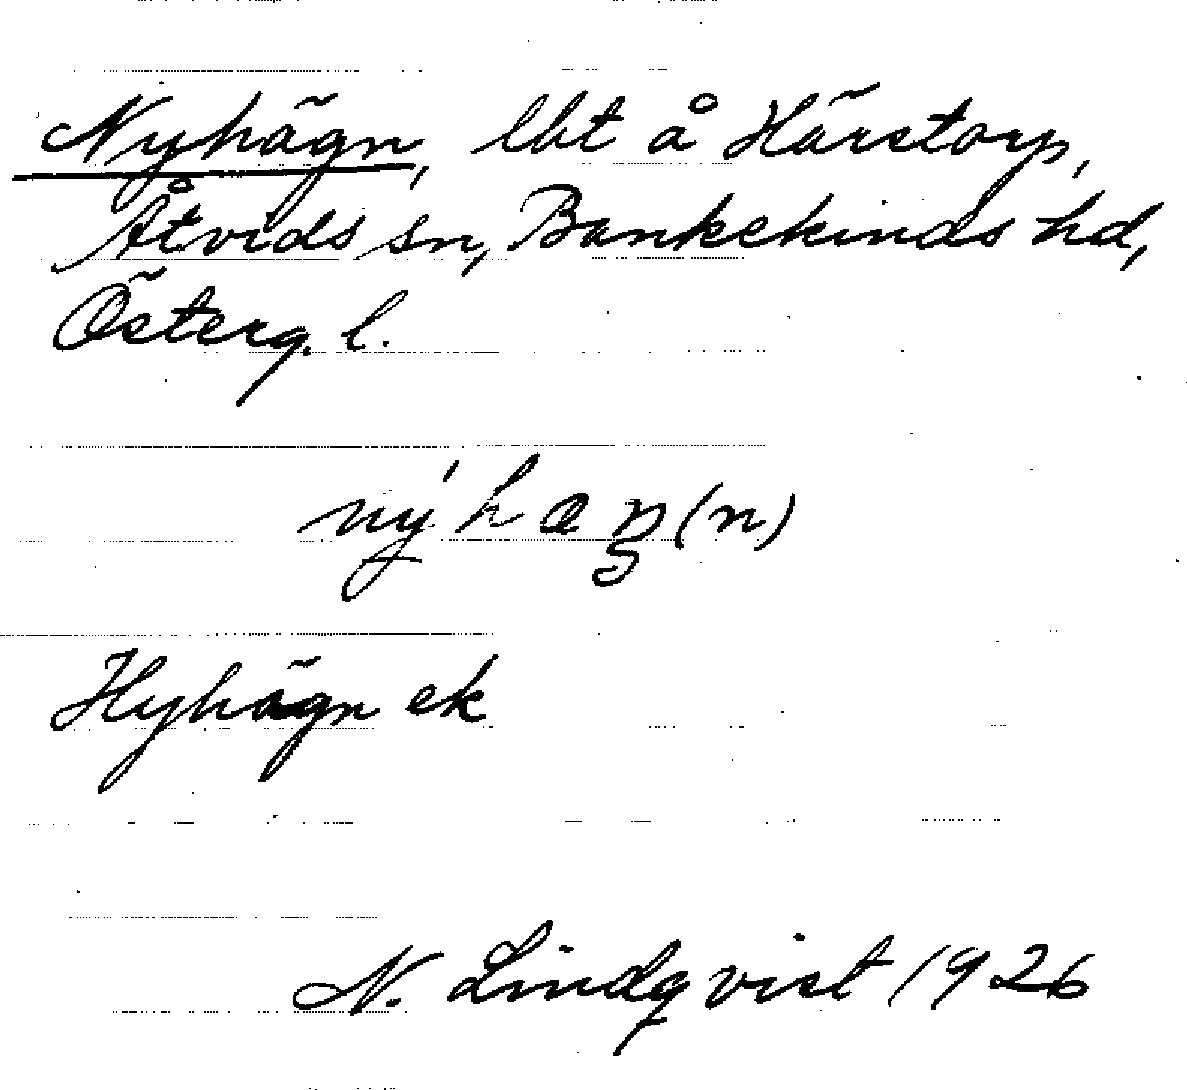 Nyhägn, lht å Härstorp,
Åtvids sn, Bankekinds hd,
Österg. l.
nýhæŋ(n)
Hyhägn ek
N. Lindqvist 1926